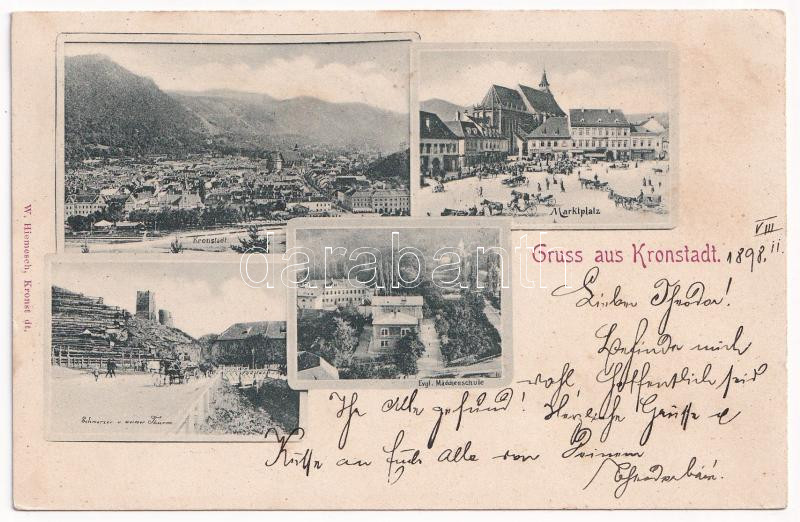 W. Hiemesch, Kronstadt.
Kronstadt
Marktplatz
Gruss aus Kronstadt. 1898. VIII 11.
Evgl. Mädchenschule
Schwarzer u. weisser Thurm
Lieber Theodor!
Befinde mich
wohl, hoffentlich seid
Ihr Alle gesund! Herzliche Grüsse u
Küsse an Euch Alle von Deinem
darabanth